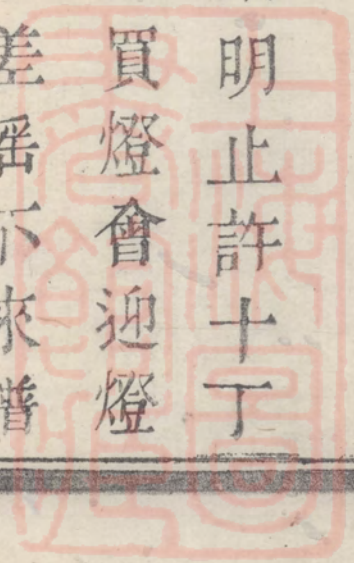 明止許十丁
買燈會迎燈
差徭不來譜